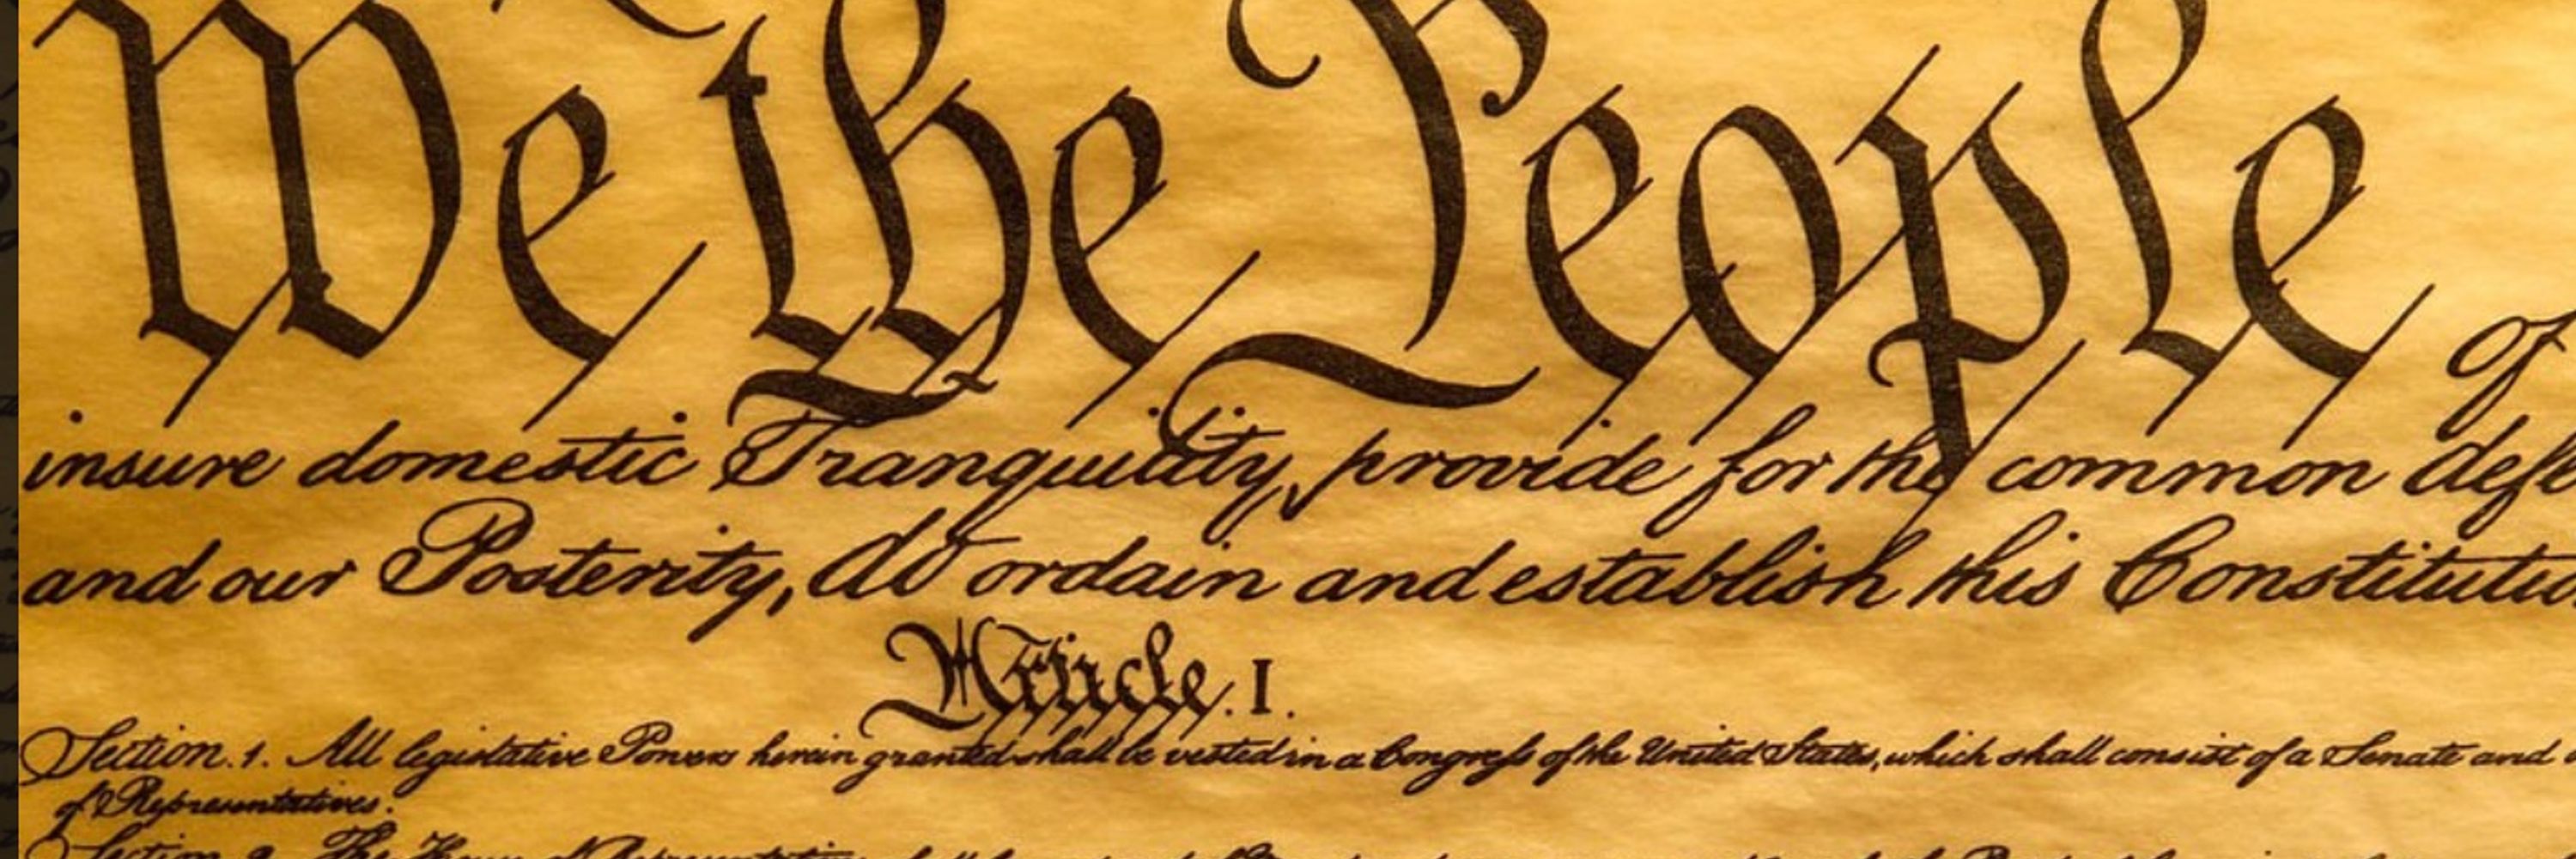 We the People of
insure domestic Tranquility, provide for the common defe
and our Posterity, do ordain and establish this Constitutio
Article. I.
Section. 1. All legislative Powers herein granted shall be vested in a Congress of the United States, which shall consist of a Senate and
of Representatives.
Section. 2. The House of Representatives